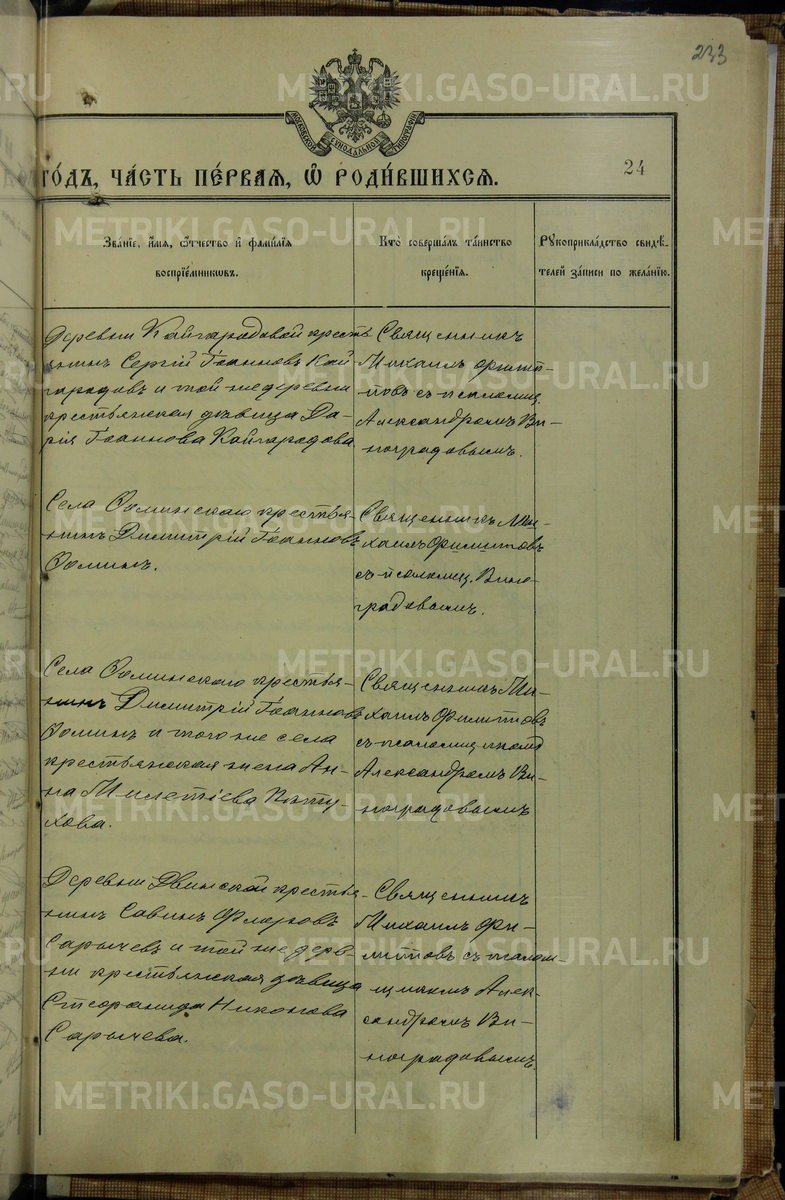 233
МОСКОВСКОЙ СѴНОДАЛЬНОЙ ТИПОГРАФІИ
24
го́дъ, ча́сть пе́рвая, ѡ҆ роди́вшихсѧ.
Зва́нїе, и҆́мѧ, ѻ҆́тчество и҆ фами́лїѧ
воспрїе́мникѡвъ.
Кто̀ соверша́лъ та́инство
креще́нїѧ.
Рꙋкоприкла́дство свидѣ́-
телей за́писи по жела́нїю.
Деревни Кайгородовой кресть
янинъ Сергій Іоанновъ Кай
городовъ и той же деревни
крестьянская дѣвица Да-
рія Іоаннова Кайгородова
Священникъ
Михаилъ Филип-
повъ съ псаломщ.
Александромъ Ви-
ноградовымъ.
Села Ѳоминскаго крестья-
нинъ Димитрій Іоанновъ
Ѳоминъ.
Священникъ Ми-
хаилъ Филипповъ
съ псаломщ. Вино-
градовымъ.
Села Ѳоминскаго крестья-
нинъ Димитрій Іоанновъ
Ѳоминъ и того же села
крестьянская жена Ан-
на Милетіева
Священникъ Ми-
хаилъ Филипповъ
съ псаломщикомъ
Александромъ Ви-
ноградовымъ
Деревни Двинской крестья-
нинъ Савинъ Флоровъ
Сарычевъ и той же дерев-
ни крестьянская дѣвица
Никонова
Сарычева.
Священникъ
Михаилъ Фи-
липповъ съ псалом-
щикомъ Алек-
сандромъ Ви-
ноградовымъ.
METRIKI.GASO-URAL.RU